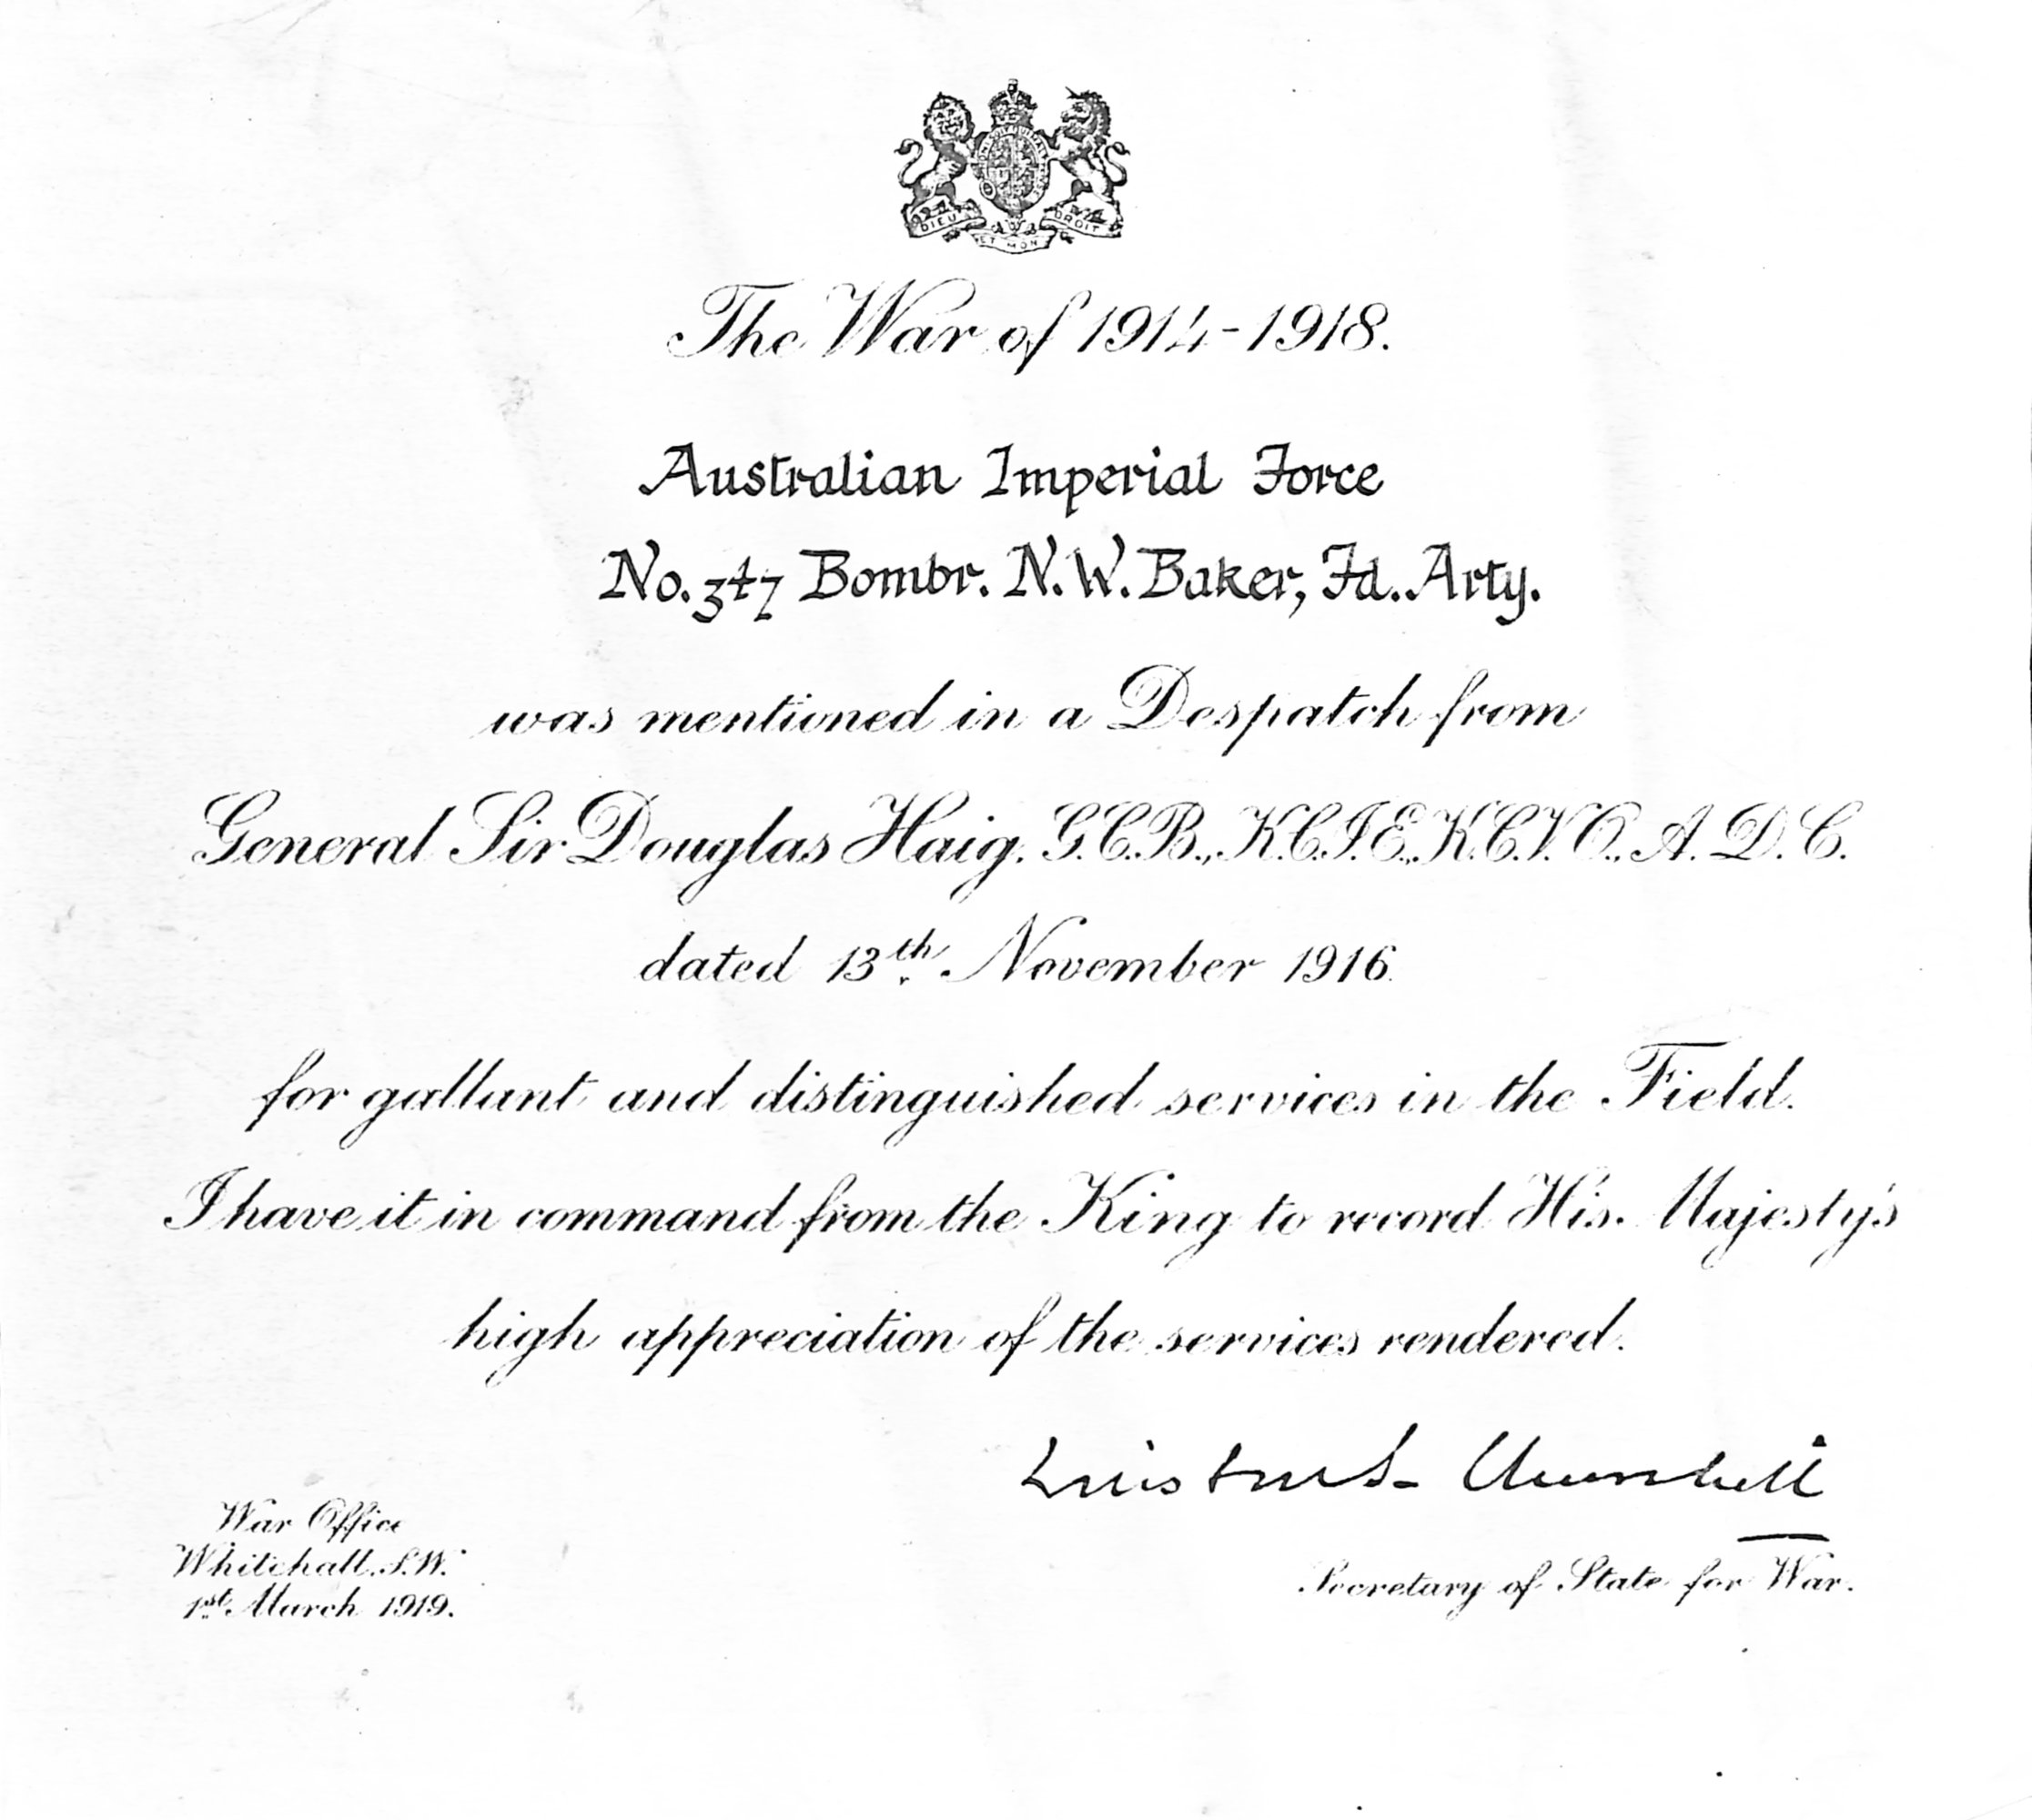 HONI SOIT QUI MAL Y PENSE
DIEU ET MON DROIT
The War of 1914-1918.
Australian Imperial Force
No. 347 Bombr. N.W. Baker, Fd. Arty.
was mentioned in a Despatch from
General Sir Douglas Haig, G.C.B., K.C.I.E., K.C.V.O., A.D.C.
dated 13th November 1916
for gallant and distinguished services in the Field.
I have it in command from the King to record His Majesty's
high appreciation of the services rendered.
Winston S. Churchill
War Office
Whitehall. S.W.
1st March 1919.
Secretary of State for War.